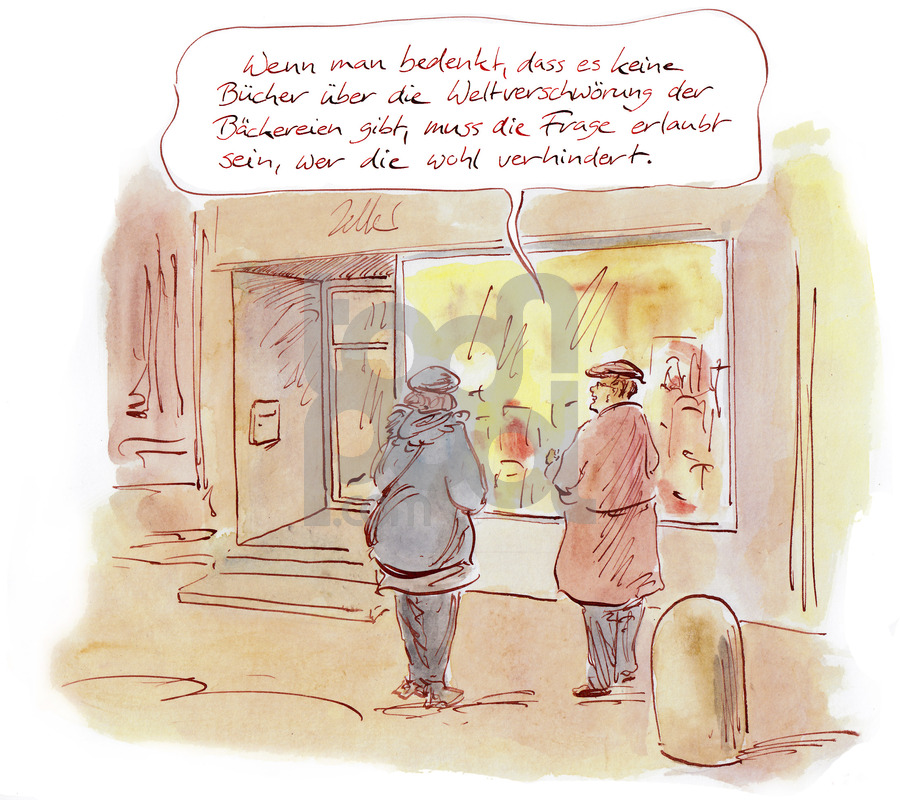 Wenn man bedenkt, dass es keine
Bücher über die Weltverschwörung der
Bäckereien gibt, muss die Frage erlaubt
sein, wer die wohl verhindert.
.com